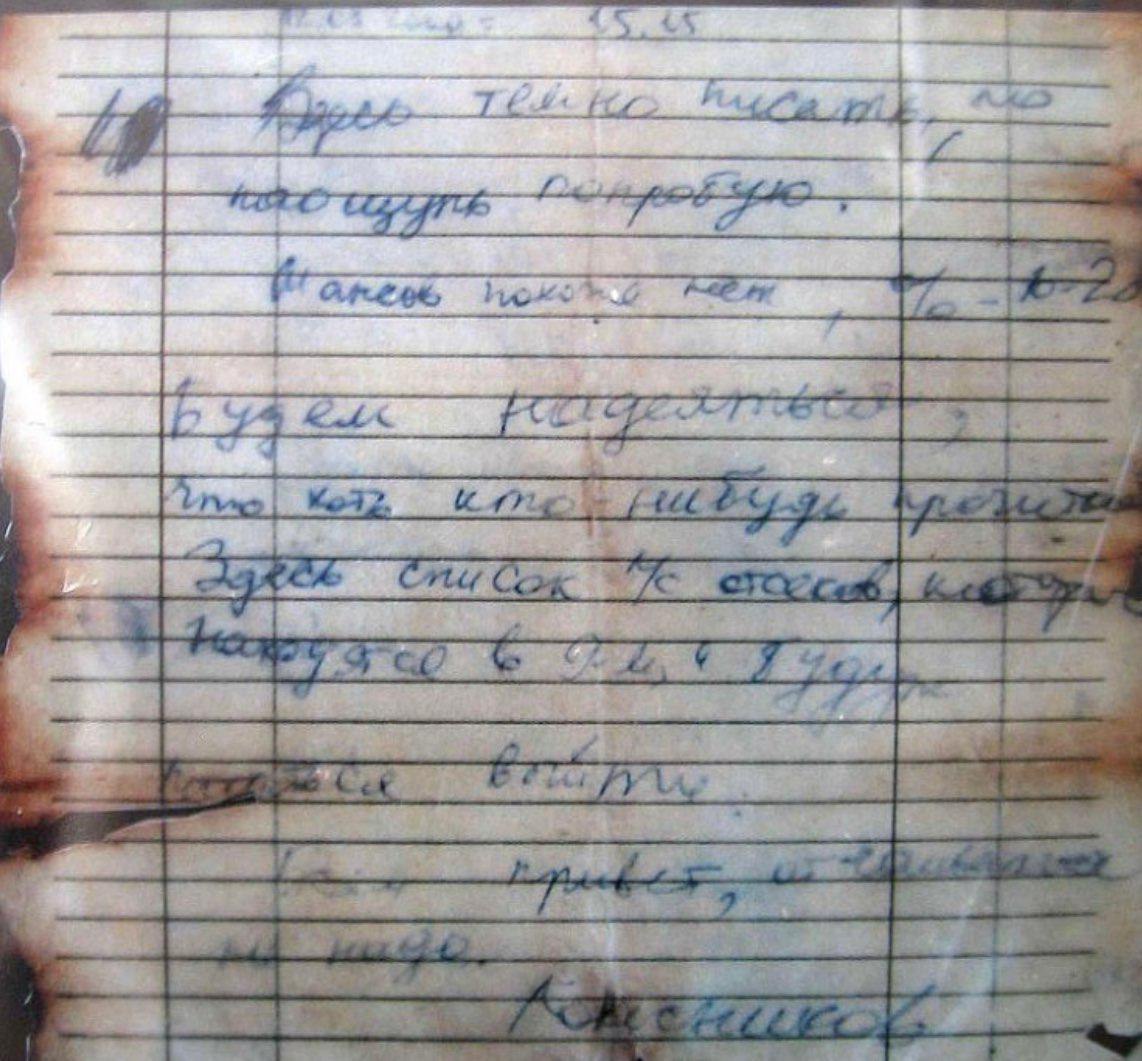 15.15
Здесь темно писать, но
наощупь попробую.
Шансов похоже нет, % - 10-20
Будем надеяться,
что хоть кто-нибудь прочитает
Здесь список л/с отсеков, которые
находятся в 9-м, и будут
пытаться выйти.
Всем привет, отчаиваться
не надо.
Колесников